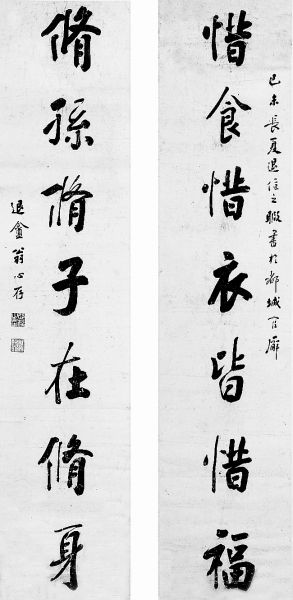 惜食惜衣皆惜福
己未長夏退之暇書於都城官廨
脩孫脩子在脩身
退盦翁心存